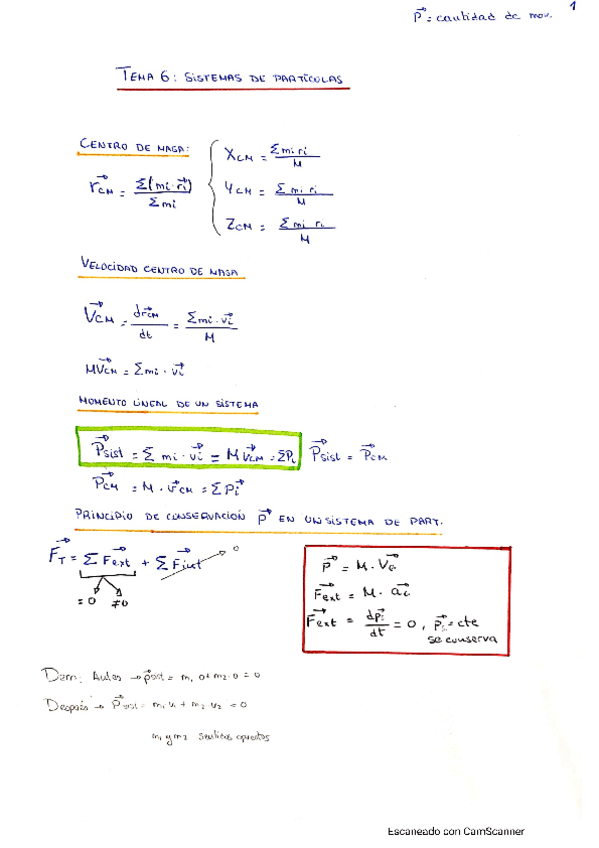 1
P⃗ = cantidad de mov.
TEMA 6: SISTEMAS DE PARTÍCULAS
CENTRO DE MASA:
r⃗CM = Σ(mi·r⃗i) / Σmi
XCM = Σmi ri / M
YCM = Σmi ri / M
ZCM = Σmi ri / M
VELOCIDAD CENTRO DE MASA
V⃗CM = dr⃗CM / dt = Σmi·v⃗i / M
MV⃗CM = Σmi·v⃗i
MOMENTO LINEAL DE UN SISTEMA
P⃗sist = Σ mi·v⃗i = M V⃗CM = ΣPi P⃗sist = P⃗CM
P⃗CM = M·v⃗CM = ΣP⃗i
PRINCIPIO DE CONSERVACIÓN P⃗ EN UN SISTEMA DE PART.
F⃗T = Σ F⃗ext + Σ F⃗int 0
= 0 ≠0
P⃗ = M·V⃗G
F⃗ext = M·a⃗i
F⃗ext = dp⃗i / dt = 0, p⃗i = cte
se conserva
Dem: Antes → p⃗sist = m1·0 + m2·0 = 0
Después → P⃗sist = m1 v1 + m2·v2 = 0
m1 y m2 sentidos opuestos
Escaneado con CamScanner